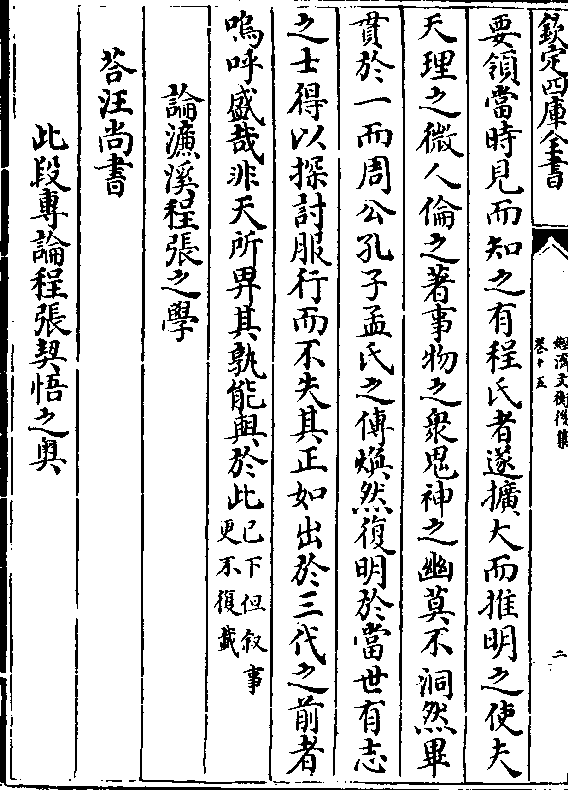 欽定四庫全書
經濟文衡後集
卷十五
二
要領當時見而知之有程氏者遂擴大而推明之使夫
天理之微人倫之著事物之衆鬼神之幽莫不洞然畢
貫於一而周公孔子孟氏之傳煥然復明於當世有志
之士得以探討服行而不失其正如出於三代之前者
嗚呼盛哉非天所畀其孰能與於此已下但叙事更不復載
論濂溪程張之學
荅汪尚書
此段專論程張契悟之奥